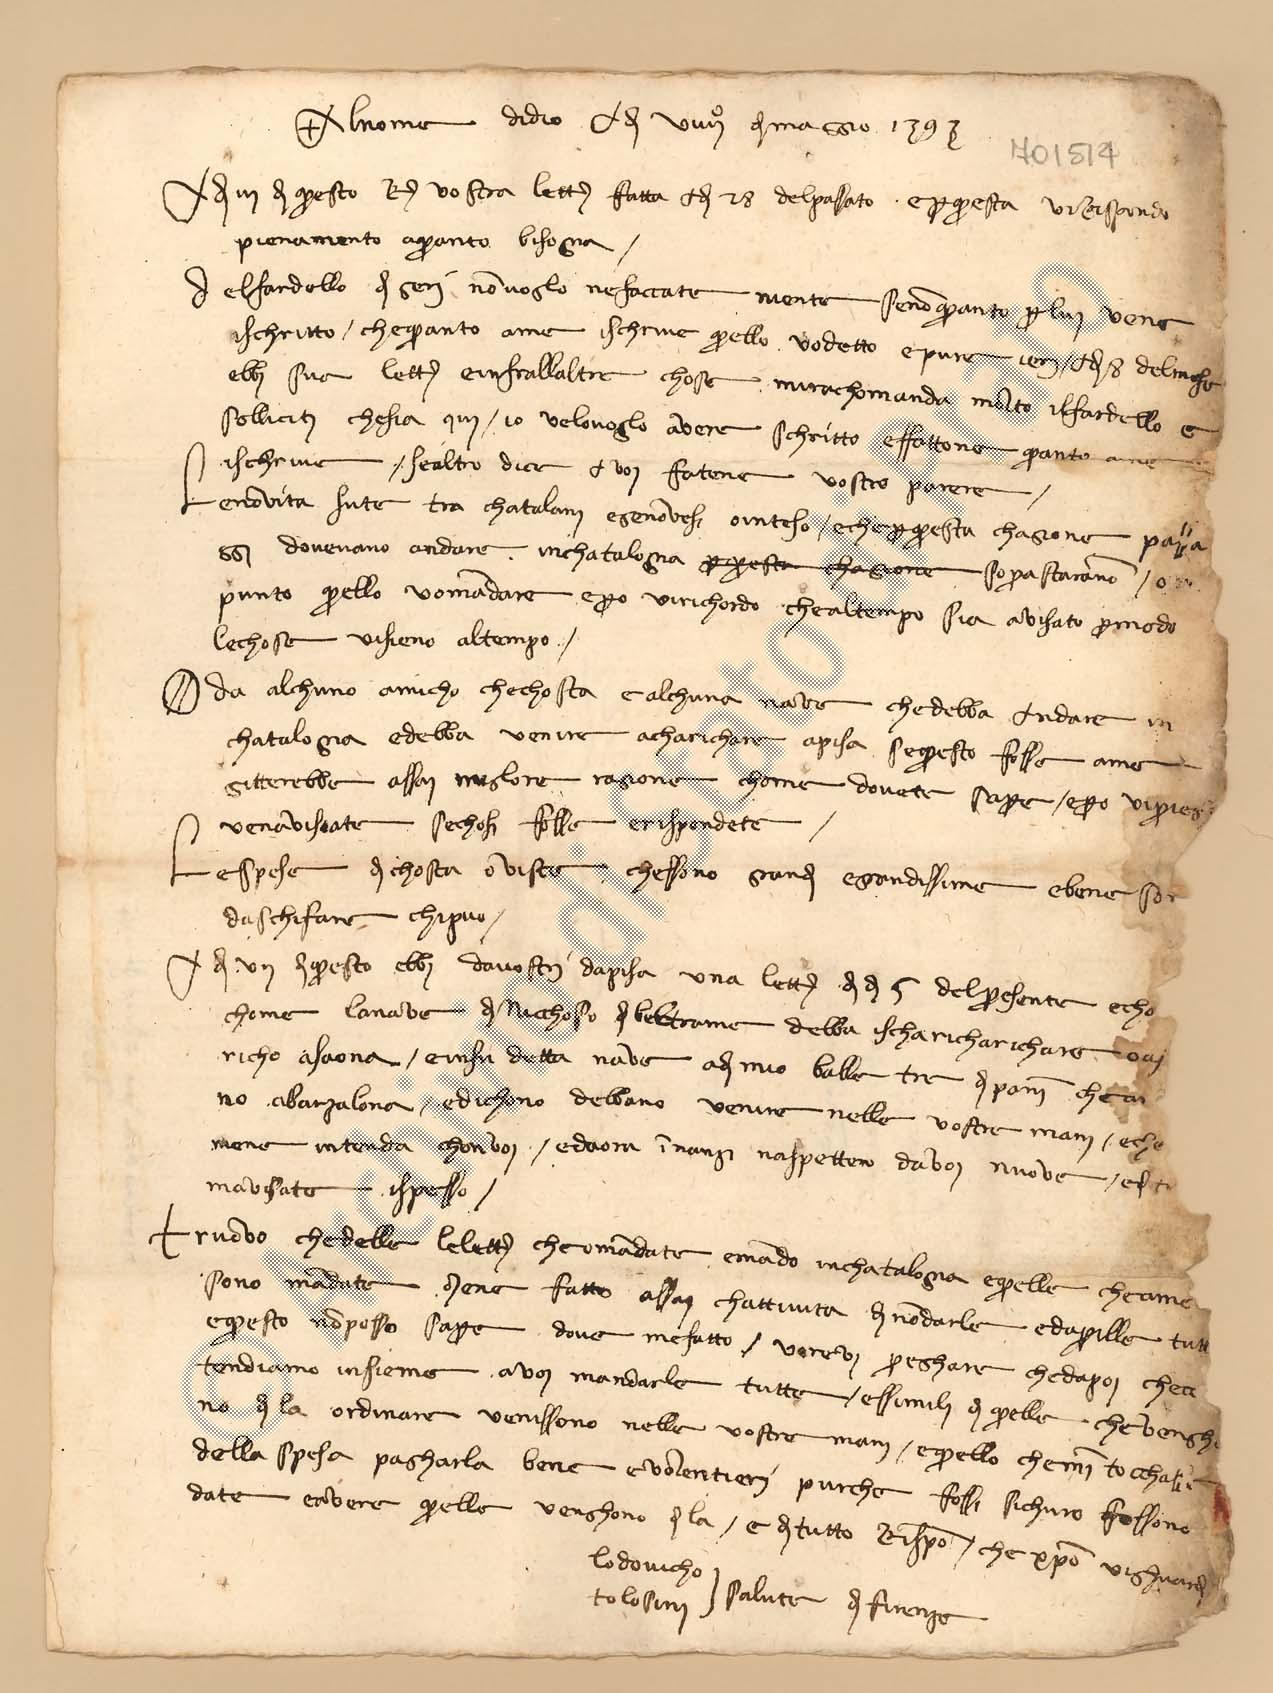 Al nome di dio a dì viiii° di magio 1393
701514
A dì iii di questo R. vostra lett. fatta a dì 28 del passato e per questa vi rispondo
pienamento a quanto bisogna /
Del fardello di seri non voglo ne facciate niente se non quanto per lui vene
ischritto / che quanto a me ischrive quello vo detto e pure ieri / a dì 8 del mese
ebbi sua lett. e infrall altre chose mi rachomanda molto il fardello e
solliciti che sia qui / io ve lo voglo avere schritto e fattone quanto a me
ischrive / se altro dice a voi fatene vostro parere /
Le novita sute tra chatalani e genovesi o inteso / e che per questa chagione
gi dovevano andare in chatalogna per questa chagione sopastaranno /
punto quello vo mandare e pero vi richordo che al tempo sia avisato per modo
le chose vi sieno al tempo /
Da alchuno amicho che chosta e alchuna nave che debba andare in
chatalogna e debba venire a charichare a pisa se questo fosse a me
gitterebbe assai miglore ragione chome dovete sapere / e pero vi
ve n avisate se chosi fosse e rispondete /
Le spese di chosta o viste che ssono grandi e grandissime e bene
da schifare chi puo /
A dì vii di questo ebbi da vostri da pisa una lett. di dì 5 del presente e cho
chome la nave di Nicchoso di beltrame debba ischarichare
richo a saona / e in su detta nave a di mio balle tre di panni che
no a barzalona / e dichono debbano venire nelle vostre mani /
mene intenda chon voi / e da ora inanzi n aspettero da voi nuove /
m avisate ispesso /
Truovo che delle le lett. che o mandate e mando in chatalogna e quelle che a me
sono mandate m ene fatto assai chattivita di non darle e d aprille
e questo non posso sapere dove m e fatto / vorevi preghare che da poi che
tendiamo insieme a voi mandarle tutte / e ssimili di quelle che vengho
no di la ordinare venissono nelle vostre mani / e quello che mi tocchassi
della spesa pagharla bene e volentieri purche fossi sichuro fossono
date e avere quelle venghono di la / e di tutto Rispo. / che xpo vi ghuardi
lodovicho
tolosini } salute di firenze
© Archivio di Stato di Prato